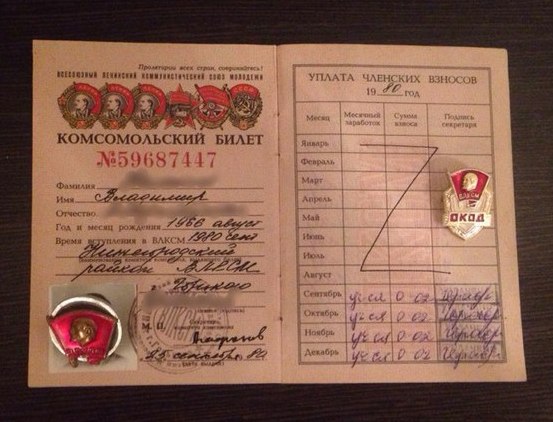 Пролетарии всех стран, соединяйтесь!
ВСЕСОЮЗНЫЙ ЛЕНИНСКИЙ КОММУНИСТИЧЕСКИЙ СОЮЗ МОЛОДЕЖИ
КОМСОМОЛЬСКИЙ БИЛЕТ
№59687447
Фамилия
Имя Владимир
Отчество
Год и месяц рождения 1966 август
Время вступления в ВЛКСМ 1980 сент
Нижегородский
райком ВЛКСМ
г. Горького
М. П.
25 сентября 80
УПЛАТА ЧЛЕНСКИХ ВЗНОСОВ
19 80 год
Месяц Месячный заработок Сумма взноса Подпись секретаря
Январь
Февраль
Март
Апрель
Май
Июнь
Июль
Август
Сентябрь уч-ся 0-02
Октябрь уч-ся 0-02
Ноябрь уч-ся 0-02
Декабрь уч-ся 0-02
ВЛКСМ
ОКОД